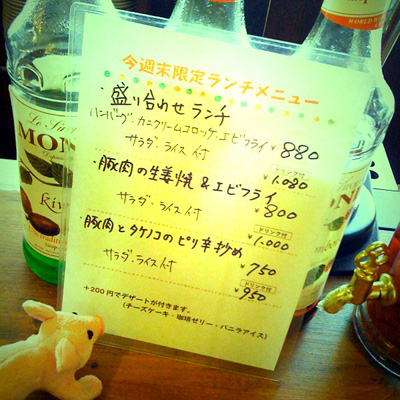 WORLD W
Le Sirop
MON
kiwi
今週末限定ランチメニュー
・盛り合わせランチ
ハンバーグ・カニクリームコロッケ・エビフライ
サラダ・ライス付 ¥880
ドリンク付 ¥1.080
・豚肉の生姜焼&エビフライ
サラダ・ライス付 ¥800
ドリンク付 ¥1.000
・豚肉とタケノコのピリ辛炒め
サラダ・ライス付 ¥750
ドリンク付 ¥950
+200円でデザートが付きます。
(チーズケーキ・珈琲ゼリー・バニラアイス)